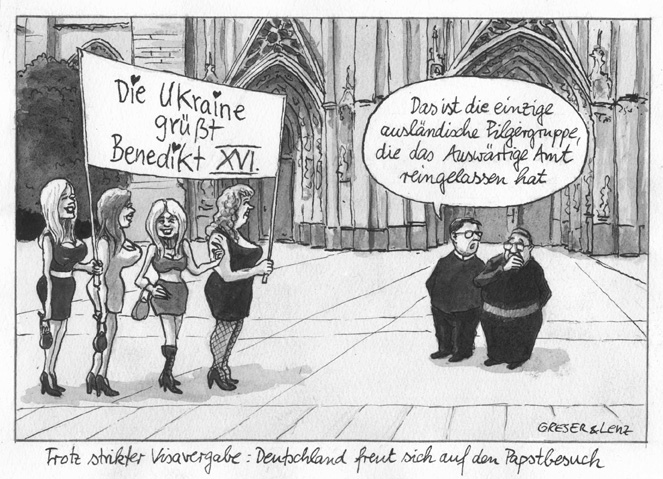 Die Ukraine
grüßt
Benedikt XVI.
Das ist die einzige
ausländische Pilgergruppe,
die das Auswärtige Amt
reingelassen hat
GRESER & LENZ
Trotz strikter Visavergabe: Deutschland freut sich auf den Papstbesuch